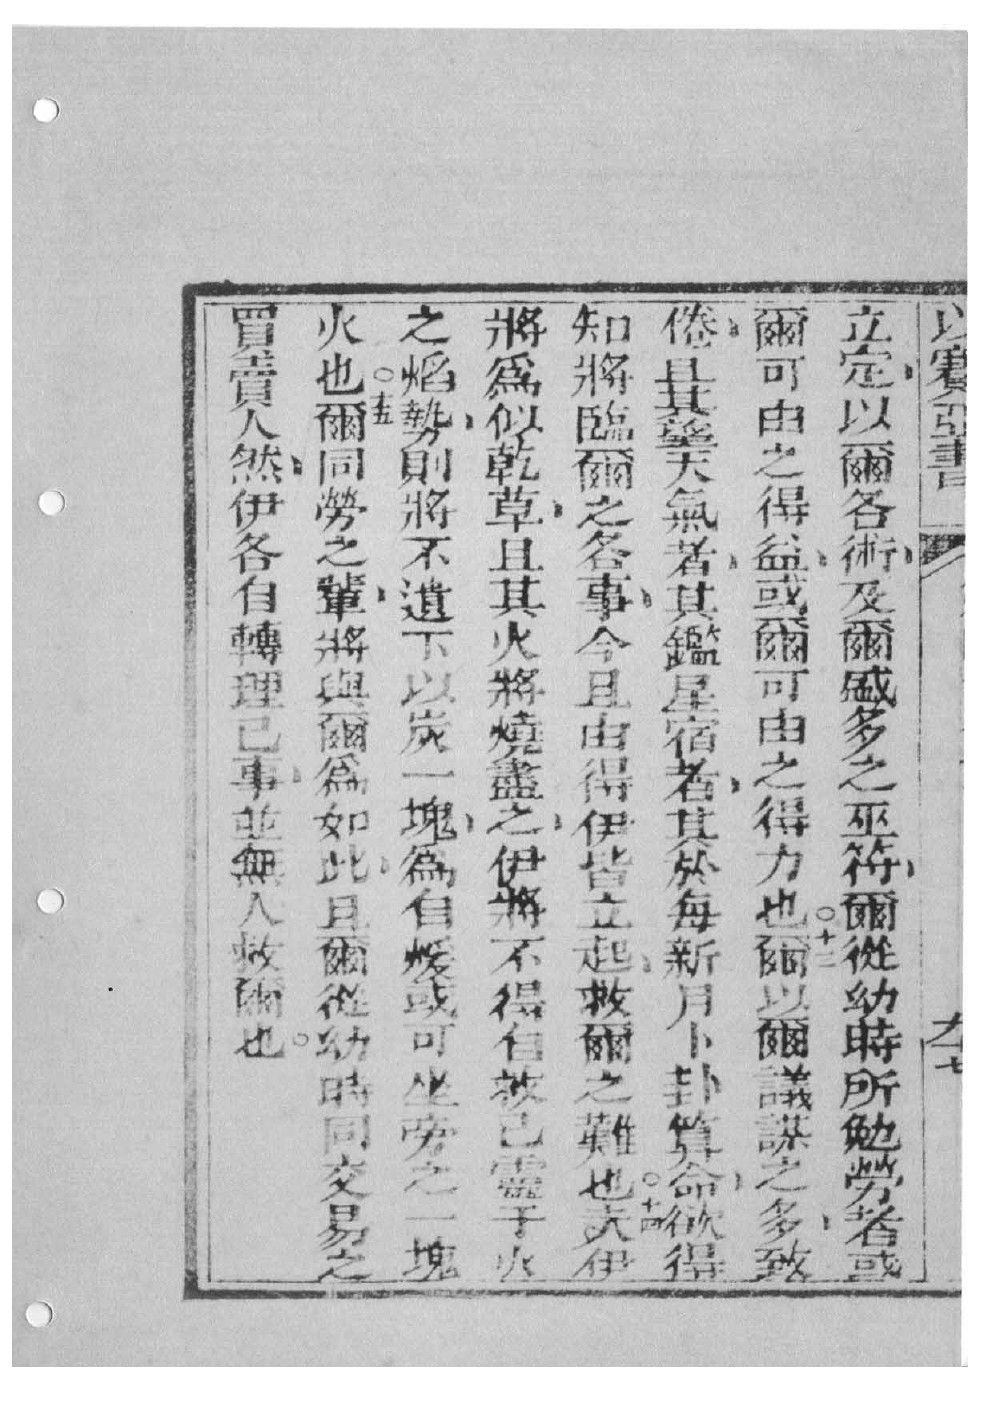 以賽亞書
九七
立定以爾各術及爾盛多之巫符爾從幼時所勉勞者或
爾可由之得益或爾可由之得力也○十三爾以爾議謀之多致
倦且其望天氣者其鑑星宿者其於每新月卜卦算命欲得
知將臨爾之各事今且由得伊皆立起救爾之難也○十四夫伊
將爲似乾草且其火將燒盡之伊將不得自救已靈于火
之焰勢則將不遺下以炭一塊爲自煖或可坐旁之一塊
火也○十五爾同勞之輩將與爾爲如此且爾從幼時同交易之
買賣人然伊各自轉理已事並無人救爾也。